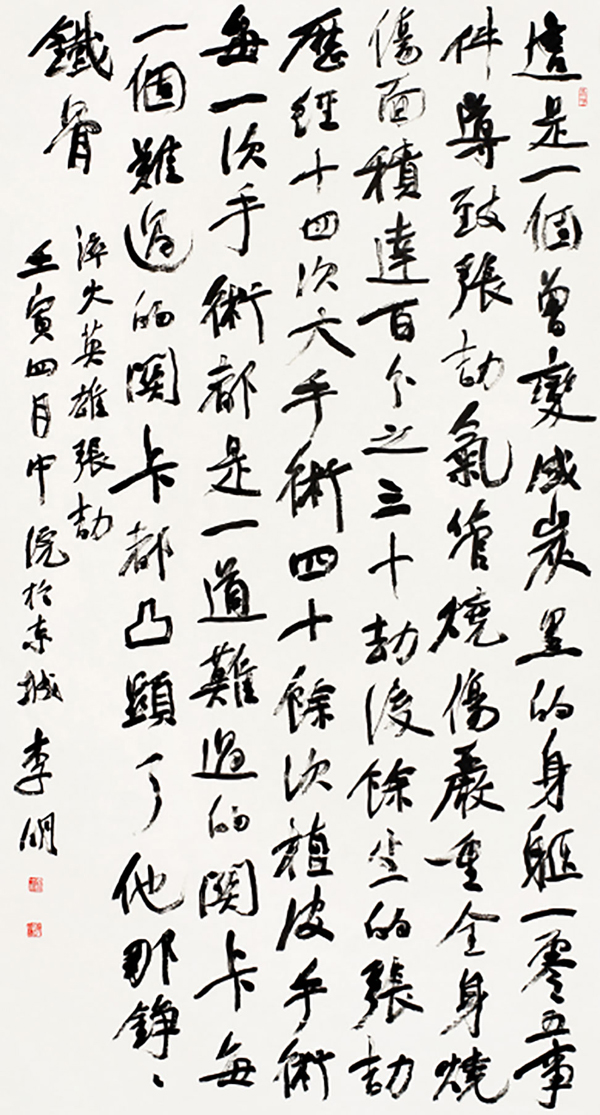 這是一個曾變成炭黑的身軀一零五事
件導致張劼氣管燒傷嚴重全身燒
傷面積達百分之三十劫後餘生的張劼
歷經十四次大手術四十餘次植皮手術
每一次手術都是一道難過的關卡每
一個難過的關卡都凸顯了他那錚〻
鐵骨
淬火英雄張劼
壬寅四月中浣於京城李明